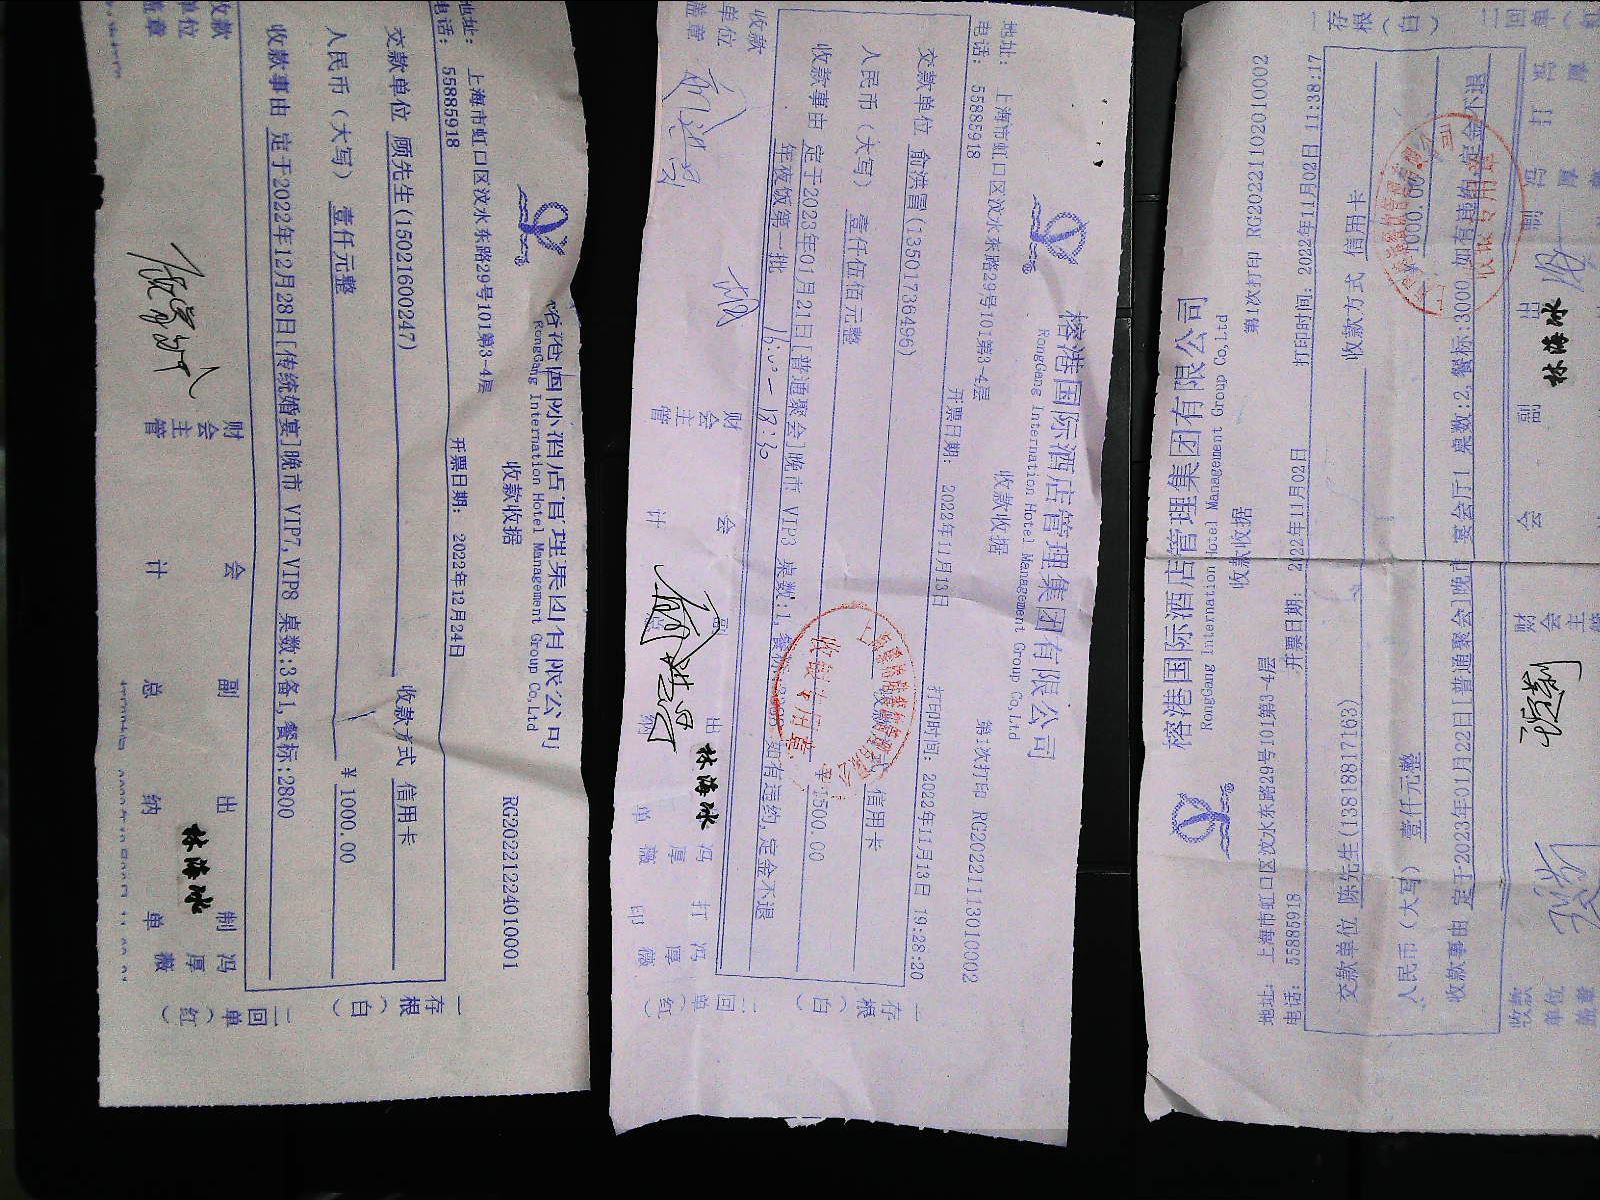 榕港国际酒店管理集团有限公司
RongGang International Hotel Management Group Co,Ltd
收款收据
RG202212240100001
地址： 上海市虹口区汶水东路29号101第3-4层
电话： 55885918
开票日期： 2022年12月24日
交款单位 顾先生(15021600247)
收款方式 信用卡
人民币（大写） 壹仟元整
￥ 1000.00
收款事由 定于2022年12月28日[传统婚宴]晚市 VIP7,VIP8 桌数:3备1,餐标:2800
一存根（白） 二回单（红）
收款单位盖章
财会主管
会计
副总
出纳
林海冰
制单
冯厚薇
榕港国际酒店管理集团有限公司
RongGang International Hotel Management Group Co,Ltd
收款收据
第1次打印 RG20221113010002
地址： 上海市虹口区汶水东路29号101第3-4层
电话： 55885918
开票日期： 2022年11月13日
打印时间: 2022年11月13日 19:28:20
交款单位 俞洪昌(13501736496)
收款方式 信用卡
人民币（大写） 壹仟伍佰元整
￥ 1500.00
收款事由 定于2023年01月21日[普通聚会]晚市 VIP3 桌数:1,
如有违约,定金不退
年夜饭第一批
16:00－18:30
收银专用章
一存根（白） 二回单（红）
收款单位盖章
财会主管
会计
副
出纳
林海冰
单
冯厚薇
打印
冯厚薇
榕港国际酒店管理集团有限公司
RongGang International Hotel Management Group Co,Ltd
收款收据
第1次打印 RG20221102010002
地址： 上海市虹口区汶水东路29号101第3-4层
电话： 55885918
开票日期： 2022年11月02日
打印时间: 2022年11月02日 11:38:17
交款单位 陈先生(13818817163)
收款方式 信用卡
人民币（大写） 壹仟元整
￥ 1000.00
收款事由 定于2023年01月22日[普通聚会]晚市 宴会厅1 桌数:2,餐标:3000 如有违约,定金不退
收银专用章
一存根（白） 二回单（红
收款单位盖章
财会主管
会
副
出
林海冰
制
冯厚
打
冯厚